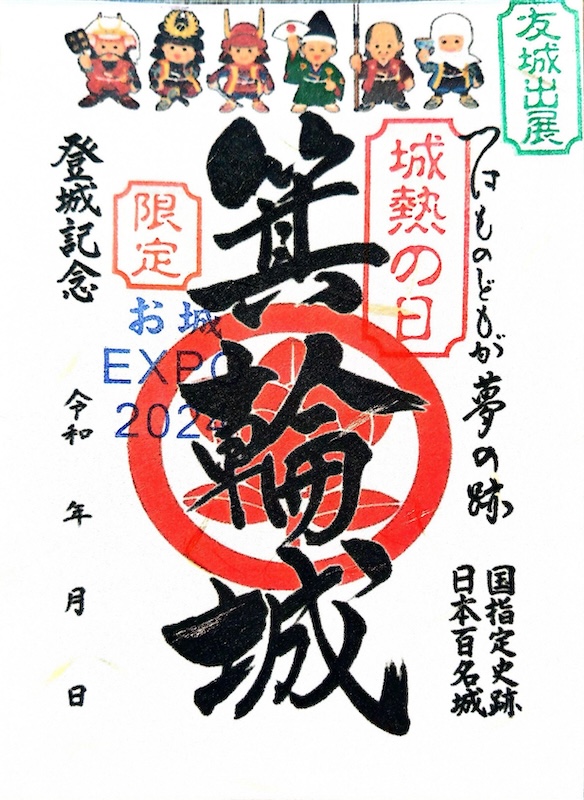 友城出展
つはものどもが夢の跡
城熱の日
国指定史跡
日本百名城
箕輪城
限定
お城
EXPO
2024
登城記念
令和 年 月 日